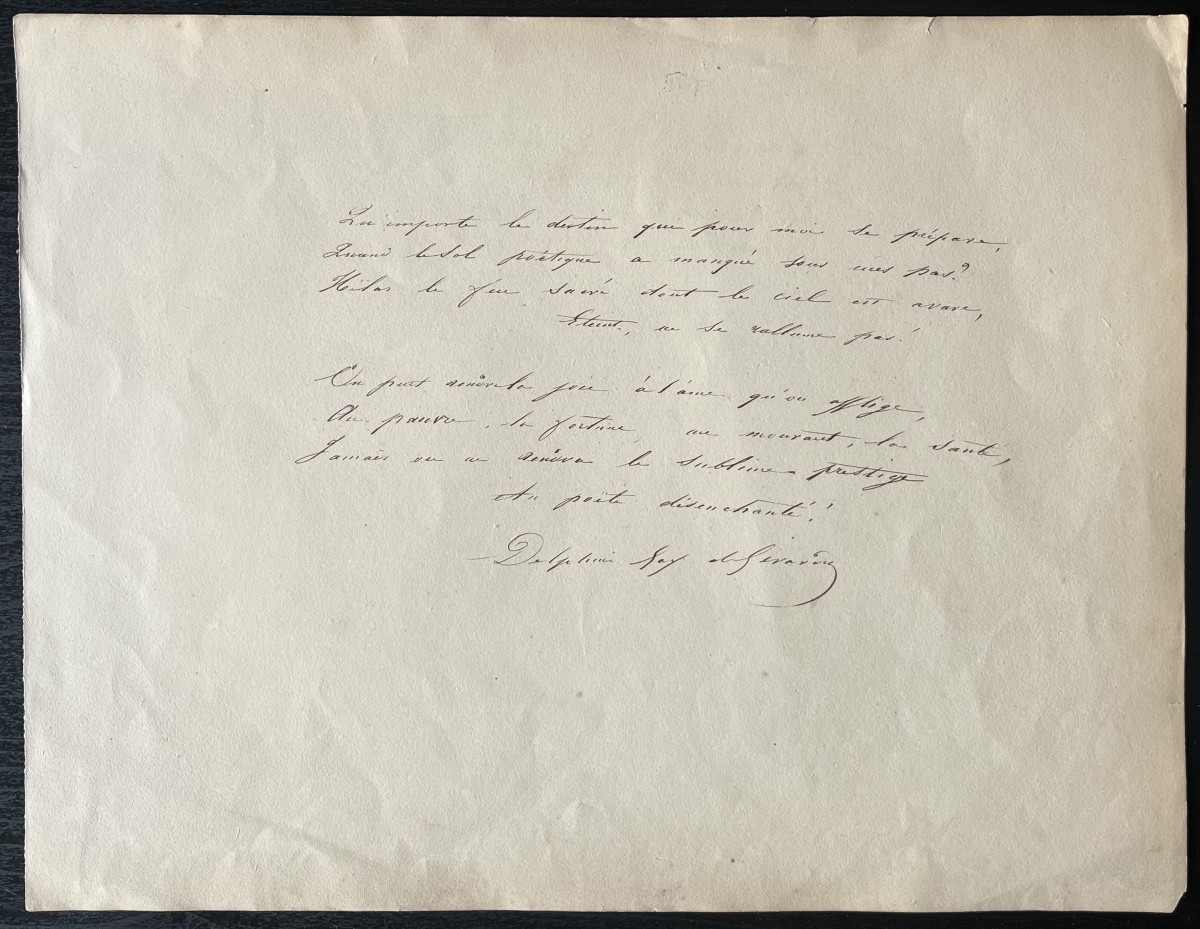 Qu'importe le destin qui pour moi se prépare,
Quand le sol poétique a manqué sous mes pas?
Hélas le feu sacré dont le ciel est avare,
Eteint, ne se rallume pas!
On peut rendre la joie à l'âme qu'on afflige,
Au pauvre, la fortune, au mourant, la santé,
Jamais on ne rendra le sublime prestige
Au poëte désenchanté!
Delphine Gay de Girardin